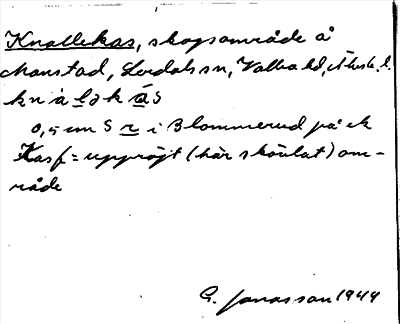 Knallekas, skogsområde å
Manstad, Lerdals sn, Valbo hd, Älvsb. l.
knàlekás
0,5 km S r i Blommerud på ek
Kas f = uppröjt (här skövlat) om-
råde
G. Jonasson 1944